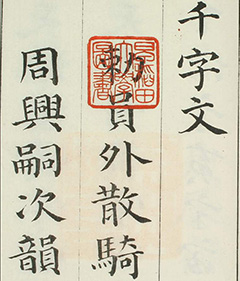 千字文
勅員外散騎
周興嗣次韻